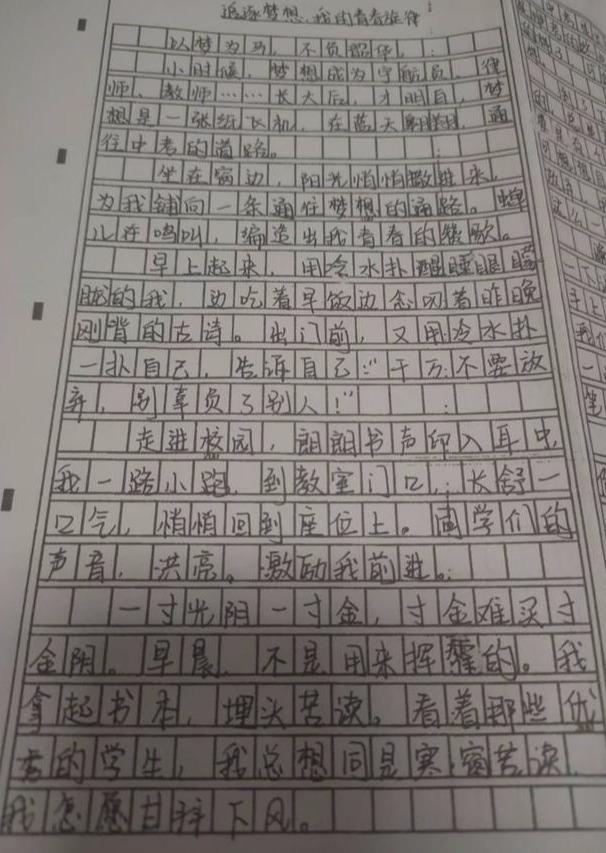 追逐梦想,我的青春旋律
以梦为马,不负韶华。
小时候,梦想成为宇航员、律
师、教师……长大后,才明白,梦
想是一张纸飞机,在蓝天翱翔,通
往中考的道路。
坐在窗边,阳光悄悄撒进来,
为我铺向一条通往梦想的通路。蝉
儿在鸣叫,编造出我青春的赞歌。
早上起来,用冷水扑醒睡眼朦
胧的我,边吃着早饭边念叨着昨晚
刚背的古诗。出门前,又用冷水扑
一扑自己,告诉自己:“千万不要放
弃,别辜负了别人!”
走进校园,朗朗书声印入耳中,
我一路小跑,到教室门口,长舒一
口气,悄悄回到座位上。同学们的
声音,洪亮。激励我前进。
一寸光阴一寸金,寸金难买寸
金阴。早晨,不是用来挥霍的。我
拿起书本,埋头苦读。看着那些优
秀的学生,我总想同是寒窗苦读,
我怎愿甘拜下风。